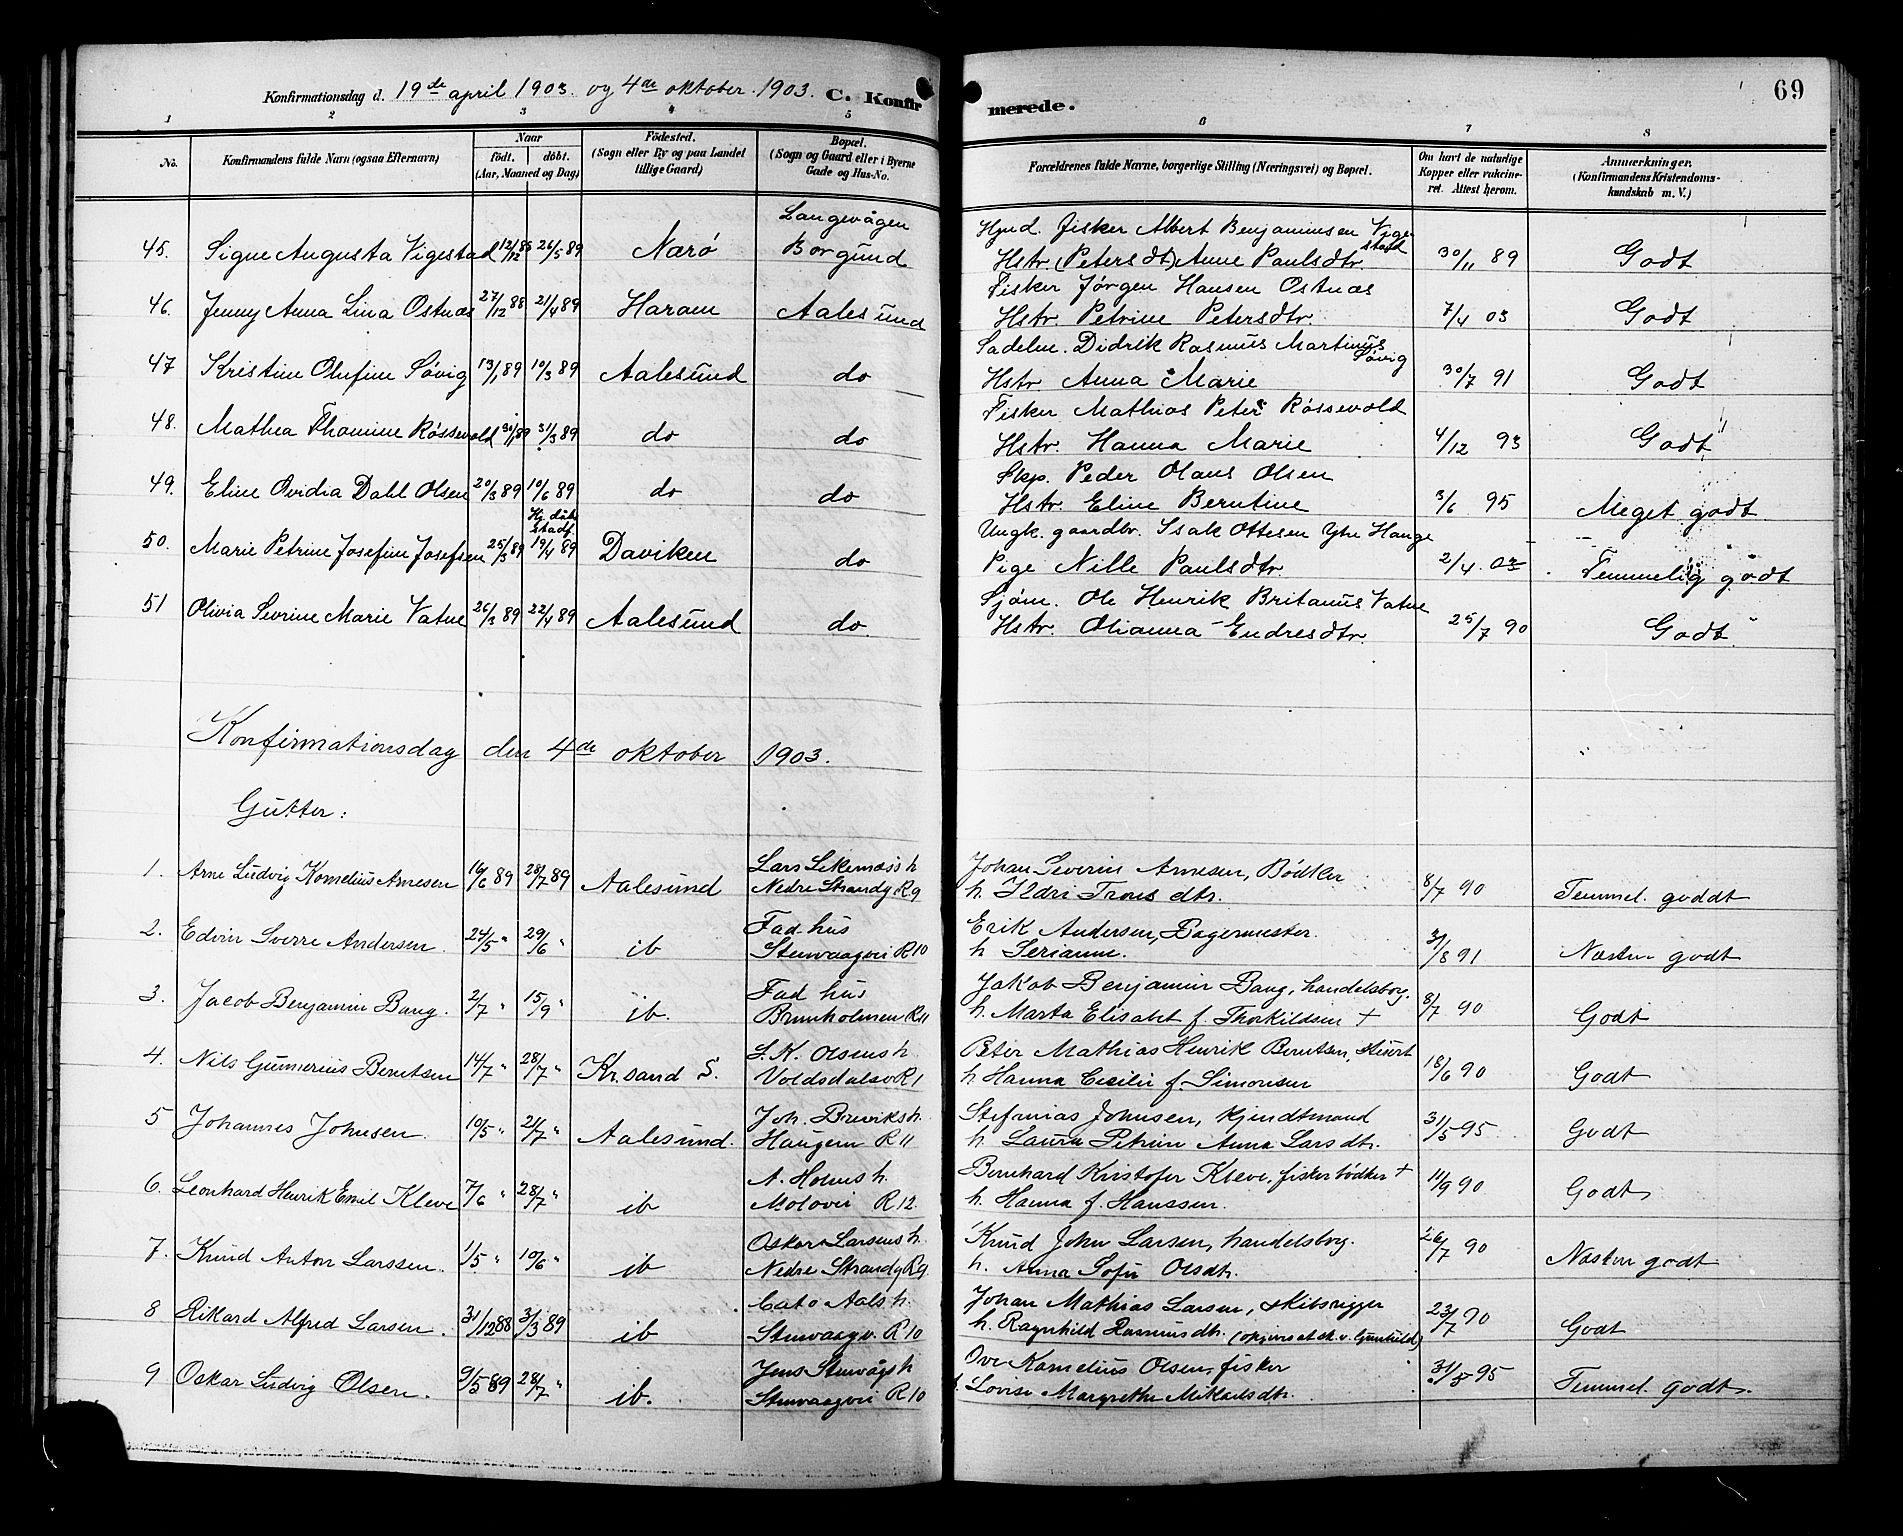 69
Konfirmationsdag d. 19de april 1903 og 4de oktober 1903. C. Konfirmerede.
1 2 3 4 5 6 7 8
No. Konfirmandens fulde Navn (ogsaa Efternavn) Naar födt. döbt. (Aar, Maaned og Dag) Födested. (Sogn eller By og paa Landet tillige Gaard) Bopæl. (Sogn og Gaard eller i Byerne Gade og Hus-No. Forældrenes fulde Navne, borgerlige Stilling (Næringsvei) og Bopæl. Om havt de naturlige Kopper eller vakcineret. Attest herom. Anmærkninger. (Konfirmandens Kristendomskundskab m. V.)
Langevågen Hjnd. Fisker Albert Benjaminsen Vigestad
45. Signe Augusta Vigestad 12/12 88 26/5 89 Nærö Borgund Hstr. (Petersdt) Anne Paulsdtr. 30/11 89 Godt
Fisker Jörgen Hansen Ostnæs
46. Jenny Anna Lina Ostnæs 27/12 88 21/4 89 Haram Aalesund Hstr. Petrine Petersdtr. 7/4 03 Godt
Sadelm. Didrik Rasmus Martinus Sövig
47 Kristine Olufine Sövig 13/1 89 10/3 89 Aalesund do Hstr. Anna Marie 30/7 91 Godt
Fisker Mathias Peter Rössevold
48. Mathea Thomine Rössevold 30/1 89 31/3 89 do do Hstr. Hanna Marie 4/12 93 Godt
Skp. Peder Olaus Olsen
49. Eline Ovidia Dahl Olsen 20/3 89 10/6 89 do do Hstr. Eline Berntine 3/6 95 Meget godt
Hj. döbt stadf. Ungk. gaardbr. Isak Ottesen Ytre Hauge
50. Marie Petrine Josefine Josefsen 25/3 89 19/4 89 Daviken do Pige Nille Paulsdtr. 2/4 03 Temmelig godt
Sjöm. Ole Henrik Britanus Vatne
51 Olivia Severine Marie Vatne 26/3 89 22/4 89 Aalesund do. Hstr. Olianna Endresdtr. 25/7 90 Godt
Konfirmationsdag den 4de oktober 1903.
Gutter:
Lars Liknæss h Johan Severin Arnesen, Bödker
1. Arne Ludvig Kornelius Arnesen 16/6 89 28/7 89 Aalesund Nedre Strandg R 9 h. Ildri Tronsdtr. 8/7 90 Temmel. goddt
Fad hus Erik Andersen, Bagermester.
2. Edvin Sverre Andersen. 24/5 " 29/6 " ib Stenvaagvei R 10 h Serianne. 31/8 91 Næsten godt
Fad hus Jakob Benjamin Bang, handelsborg.
3. Jacob Benjamin Bang. 2/7 " 15/9 " ib. Brunholmen R 11 h. Marta Elisabet f. Thorkildsen + 8/7 90 Godt
L. K. Olsens h. Peter Mathias Henrik Berntsen, stuert
4. Nils Gunnerius Berntsen 14/7 " 28/7 " Kr.sand S. Voldsdalsv R 1 h Hanna Cecilie f. Simonsen 18/6 90 Godt
Joh. Breviks h. Stefanias Johnsen, kjendtmand
5 Johannes Johnsen. 10/5 " 21/7 " Aalesund. Haugen R 11 h. Laura Petrine Anna Larsdtr. 31/5 95 Godt
A. Holms h Bernhard Kristofer Kleve, fisker bödker +
6. Leonhard Henrik Emil Kleve 7/6 " 28/7 " ib Molovei R 12. h. Hanna f. Hanssen. 11/9 90 Godt
Oskar Larsens h. Knud John Larsen, handelsborg.
7. Knud Anton Larssen. 1/5 " 10/6 " ib Nedre Strandg R 9. h. Anna Sofie Olsdtr. 26/7 90 Næsten godt
Cato Aals h. Johan Mathias Larsen, skibsrigger
8 Rikard Alfred Larsen. 31/12 88 31/3 89 ib Stenvaagv. R 10 h. Ragnhild Rasmusdtr. 23/7 90 Godt
Jens Stenvågs h Ove Kornelius Olsen, fisker
9 Oskar Ludvig Olsen. 9/5 89 28/7 " ib. Stenvaagvei R 10 h. Lovise Margrethe Mikaelsdtr. 31/5 95 Temmel. godt.